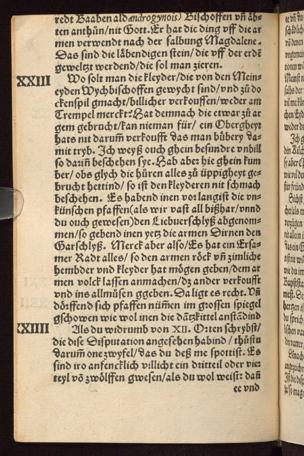 redt Baaden ald androgynois) Bischoffen vñ äb-
ten anthün/nit Gott. Er hat die ding vff die ar
men verwendt nach der salbung Magdalene.
Das sind die läbendigen stein/die vff der erdē
geweltzt werdend/die sol man zieren.
XXIII Wo solt man die kleyder/die von den Mein-
eyden Wychbischoffen gewycht sind/vnd zů do
ckenspil gmacht/billicher verkouffen/weder am
Trempel merckt? Hat demnach die etwar zů ar
gem gebrucht/kan nieman für/ein Oberghept
hats nit darum̄ verkoufft das man bübery da-
mit tryb. Ich weyß ouch ghein besundre vnbill
so darin̄ beschehen sye. Hab aber hie ghein kum
ber/obs glych die hüren alles zů üppigheyt ge-
brucht hettind/so ist den kleyderen nit schmach
beschehen. Es habend inen vor langist die vn-
künschen pfaffen(als wir vast all bißhar/vnnd
du ouch gewesen)den Lieburschlyß abgenom-
men/so gebend inen yetz die armen Dirnen den
Garschlyß. Merck aber also/Es hat ein Ersa-
mer Radt alles/so den armen röck vñ zimliche
hembder vnd kleyder hat mögen geben/dem ar
men volck lassen anmachen/dz ander verkoufft
vnd ins allmůsen ggeben. Da ligt es recht. Vñ
dörffend sich pfaffen nümen im grossen spiegel
gschowen wie wol inen die dätzkittel anständind
XXIIII Als du widrumb von XII. Orten schrybst/
die dise Disputation angesehen habind/thůstu
darum̄ one zwyfel/das du deß me spottist. Es
sind iro anfencklich villicht ein dritteil oder vier
teyl vō zwölffen gwesen/als du wol weist: dañ
ee vnd